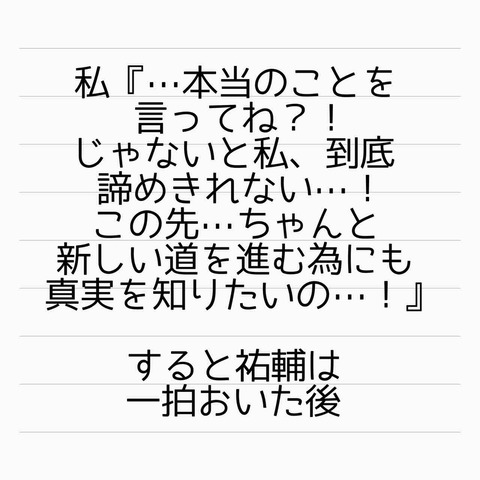 私『…本当のことを
言ってね？！
じゃないと私、到底
諦めきれない…！
この先…ちゃんと
新しい道を進む為にも
真実を知りたいの…！』
すると祐輔は
一拍おいた後